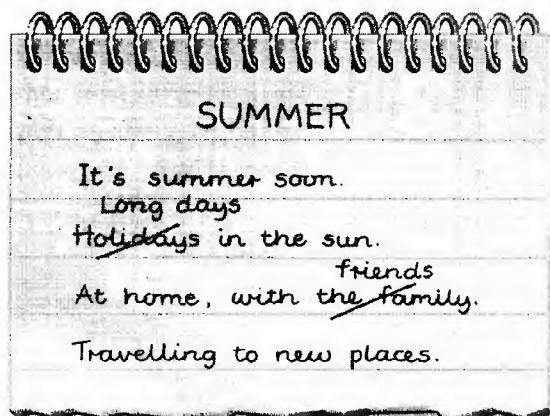 SUMMER
It's summer soon.
Long days
Holidays in the sun.
friends
At home, with the family.
Travelling to new places.